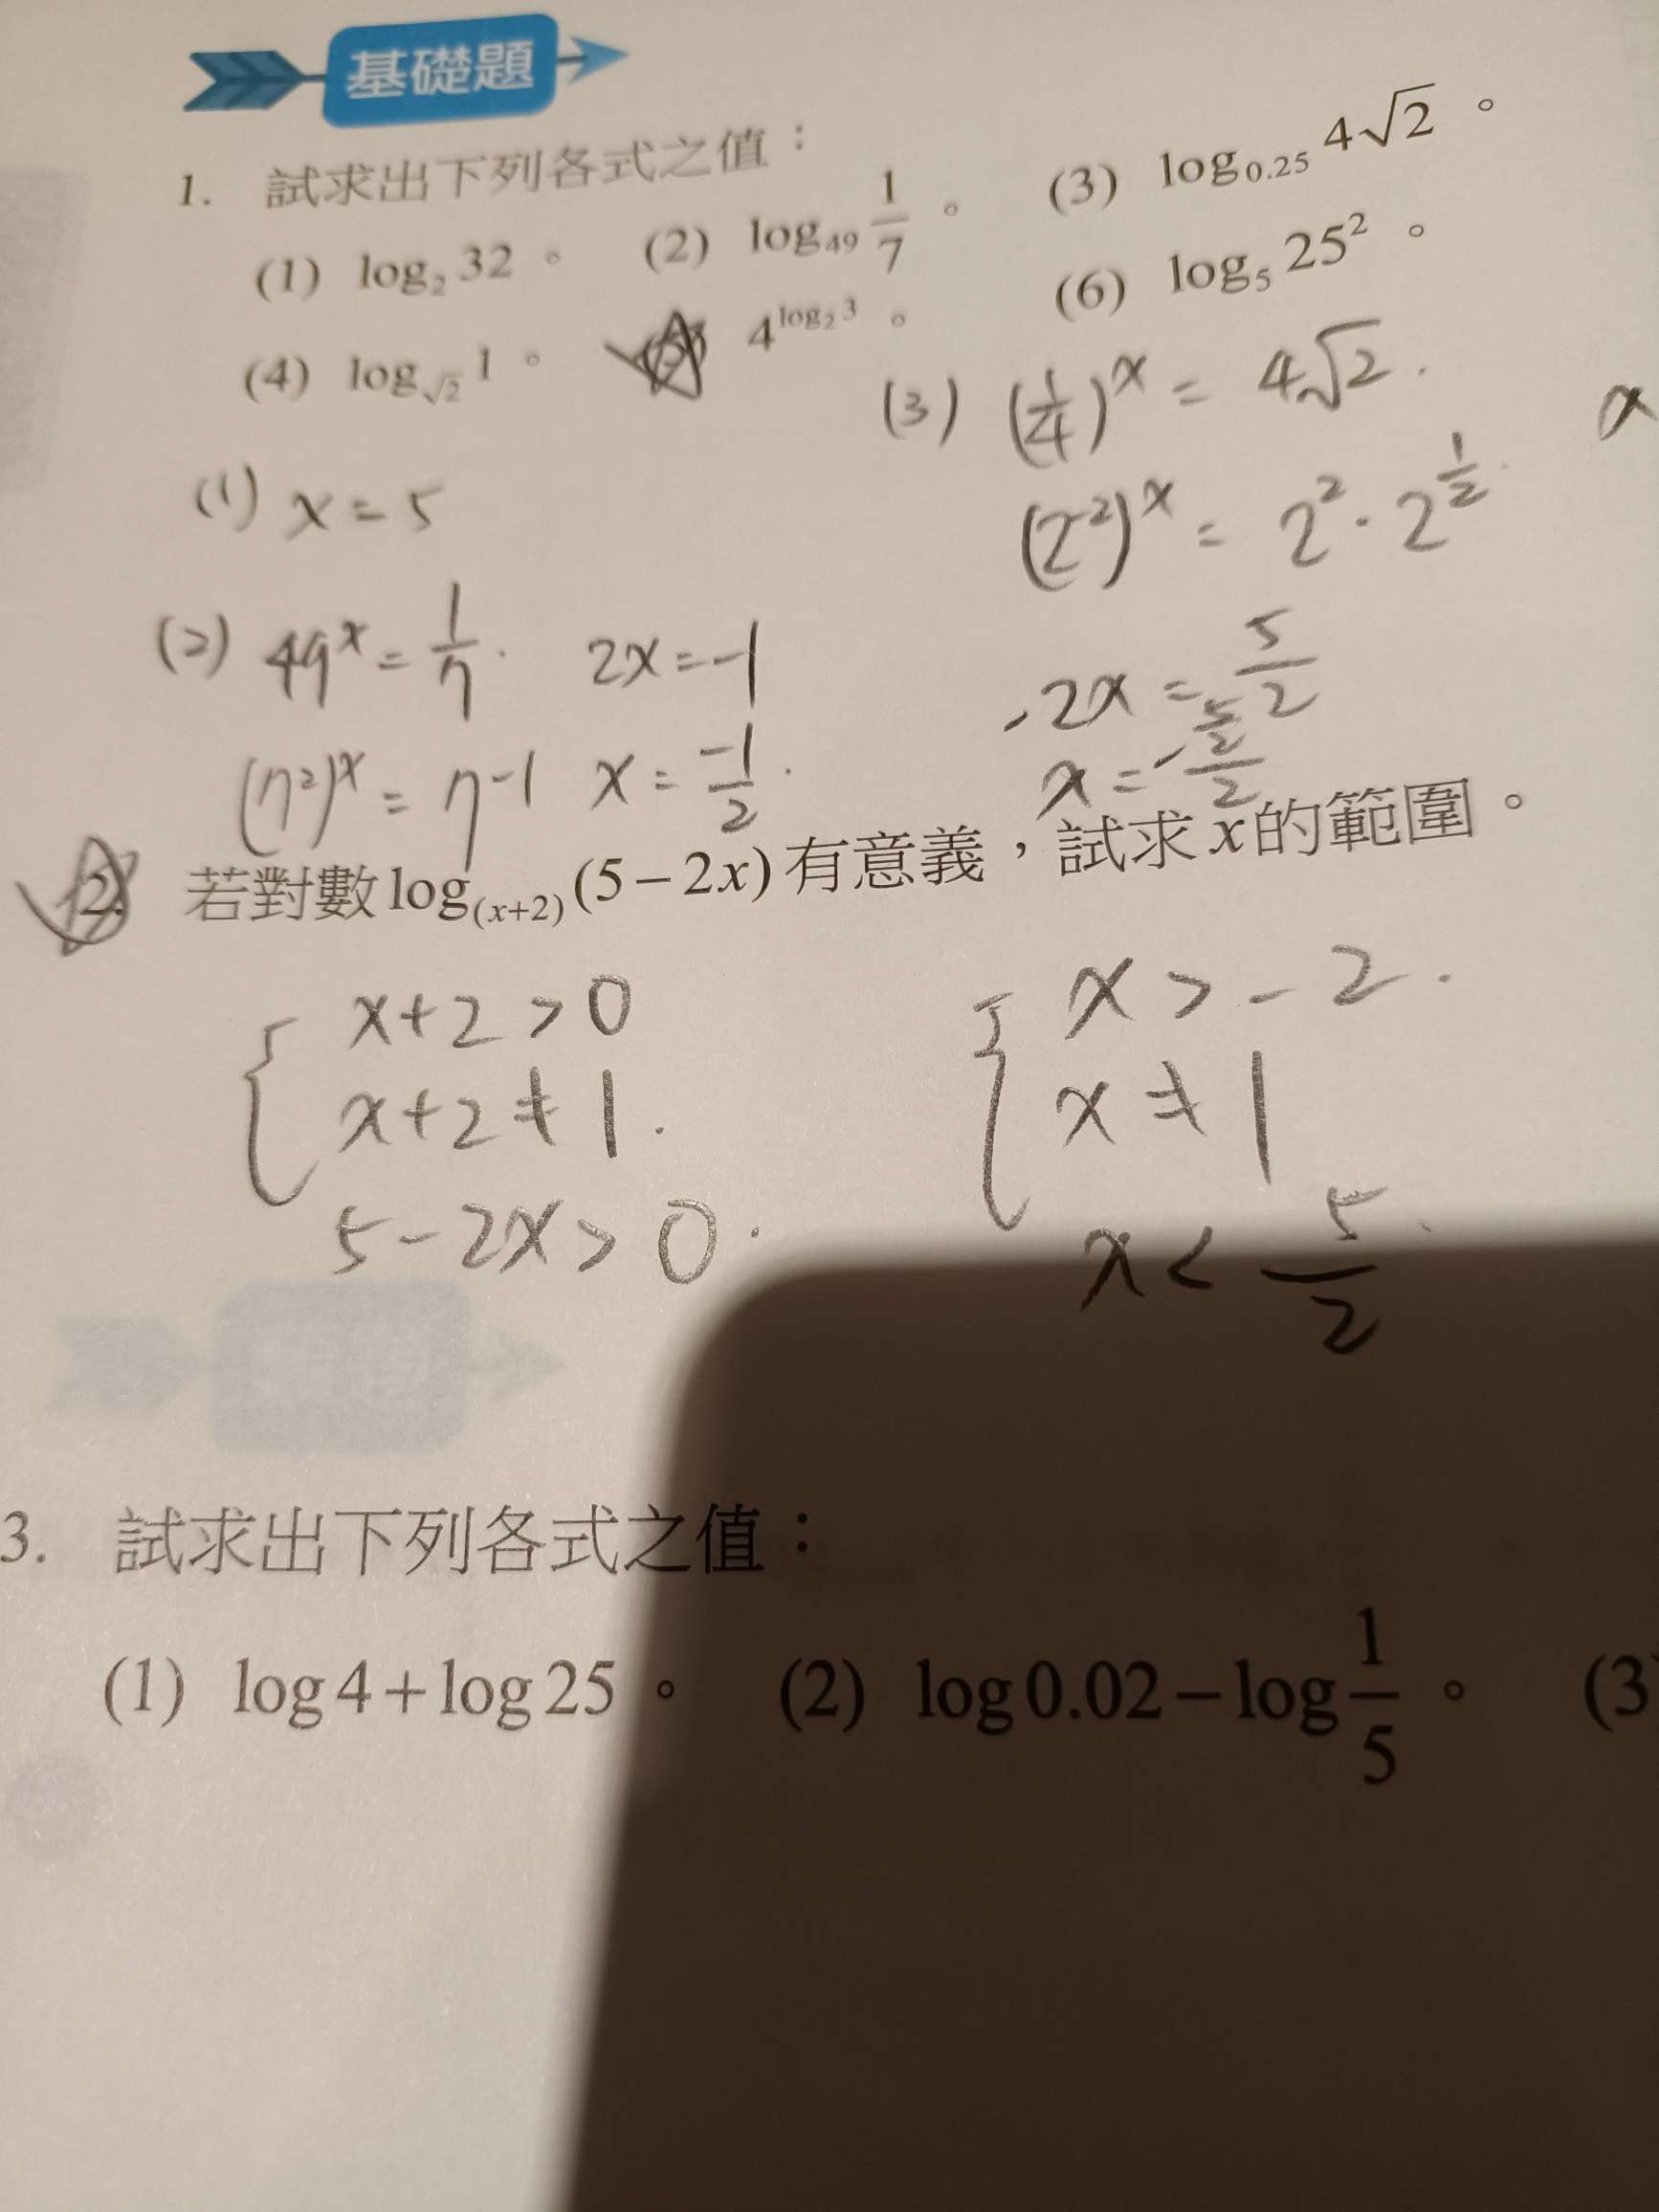 基礎題
1. 試求出下列各式之值：
(1) log₂ 32。 (2) log₄₉ 1/7。 (3) log₀.₂₅ 4√2。
(4) log_√2 1。 (5) 4^(log₂ 3)。 (6) log₅ 25²。
(1) x = 5
(2) 49^x = 1/7. 2x = -1
(7²)^x = 7^-1 x = -1/2.
(3) (1/4)^x = 4√2.
(2^-2)^x = 2² · 2^(1/2).
-2x = 5/2
x = -(5/2)/2
x
2. 若對數 log_(x+2) (5 − 2x) 有意義，試求 x 的範圍。
{ x+2 > 0 { x > -2.
x+2 ≠ 1. x ≠ 1
5 - 2x > 0. x < 5/2.
3. 試求出下列各式之值：
(1) log 4 + log 25。 (2) log 0.02 − log 1/5。 (3